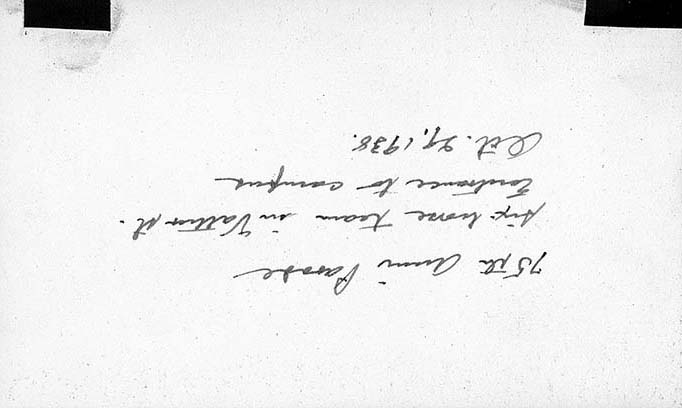 75th Anni Parade
six horse team in Vattier St.
Entrance to campus
Oct. 29, 1938.